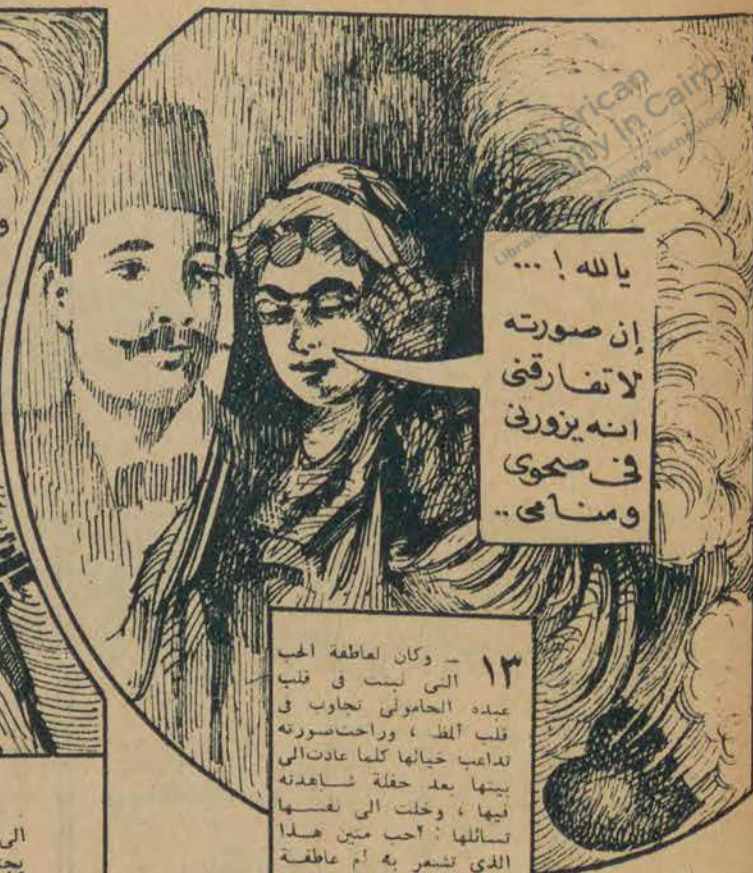 يالله ! ...
إن صورته
لا تفارقنى
انه يزورنى
فى صحوى
ومنامى ..
١٣ ـ وكان لعاطفة الحب
التى نبتت فى قلب
عبده الحامولى تجاوب فى
قلب ألمظ ، وراحت صورته
تداعب خيالها كلما عادت الى
بيتها بعد حفلة شاهدته
فيها ، وخلت الى نفسها
تسائلها : أحب متين هذا
الذى تشعر به أم عاطفة
الى
American
in Cairo